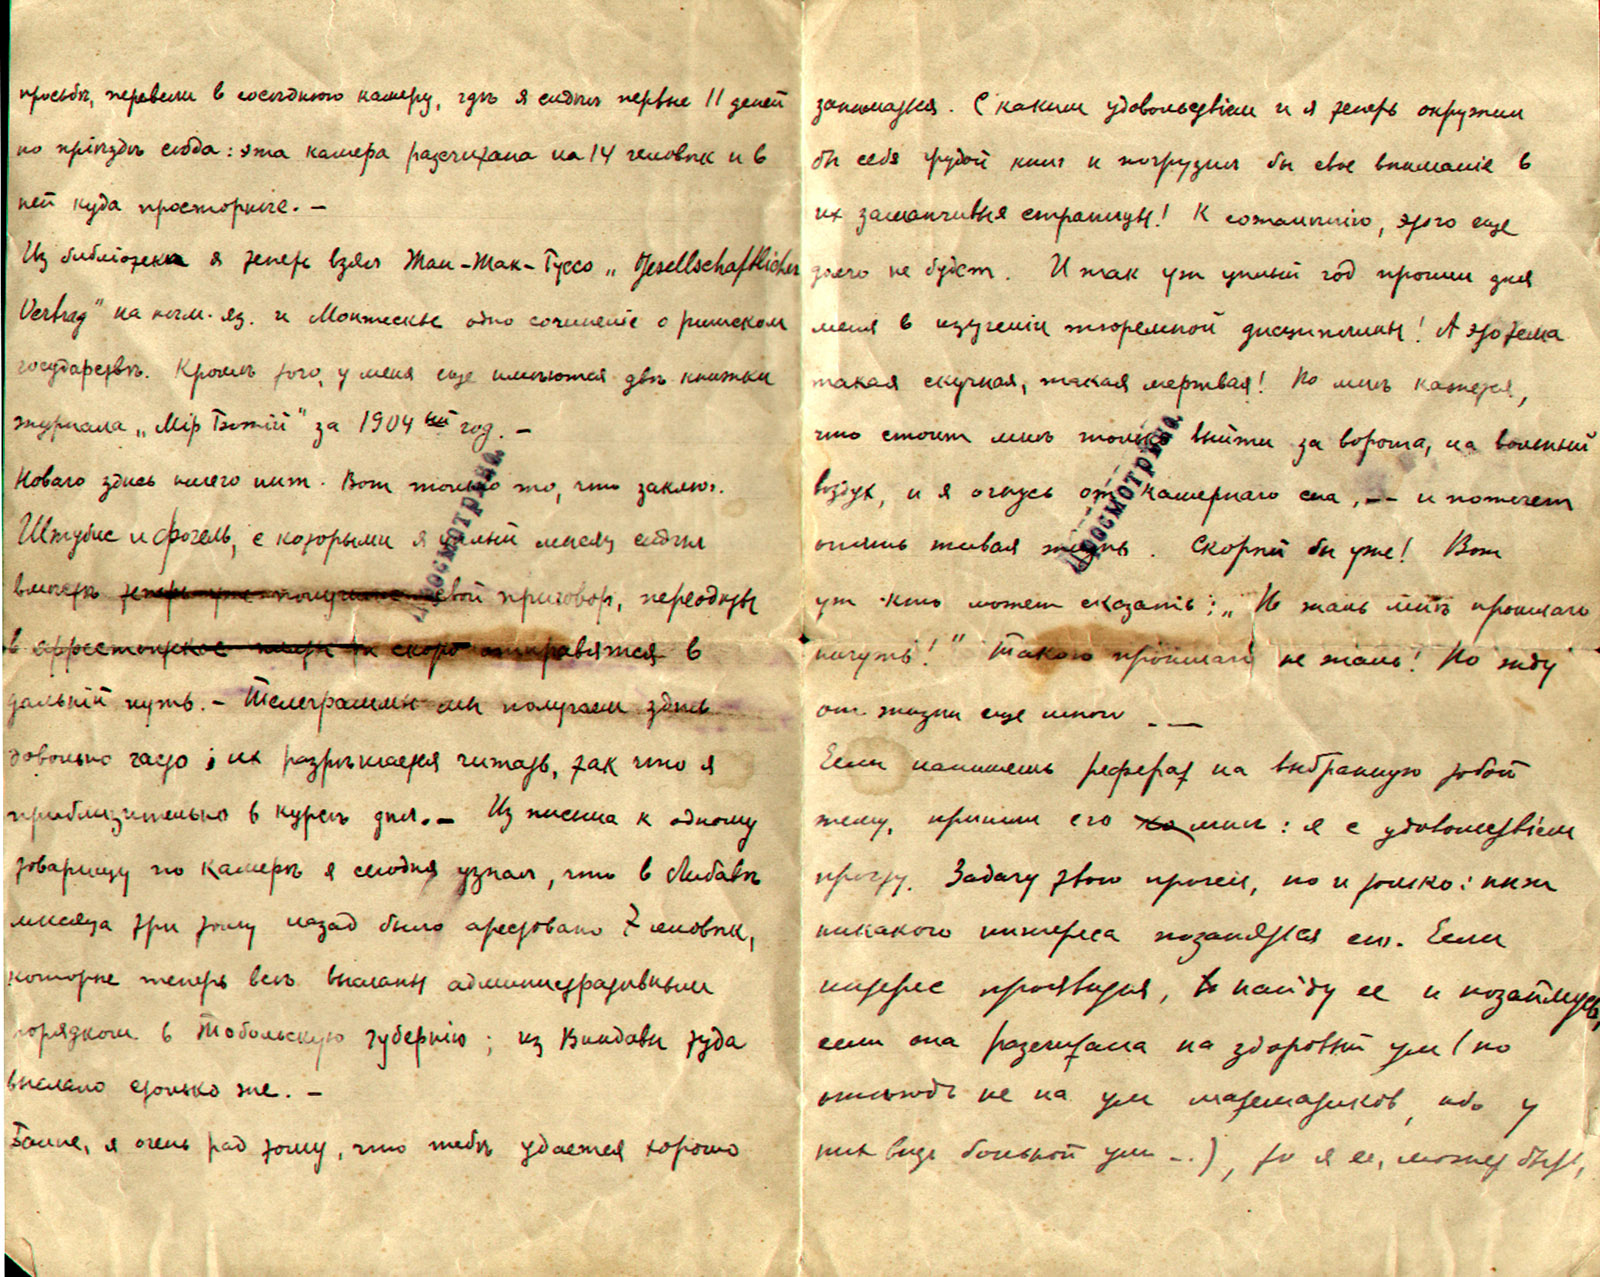 просьбѣ, перевели в сосѣднюю камеру, гдѣ я сидѣл первые 11 дней
по пріѣздѣ сюда: эта камера разсчитана на 14 человѣк и в
ней куда просторнѣе. –
Из библіотеки я теперь взял Жан-Жак-Руссо „Gesellschaftlicher
Vertrag" на нѣм. яз. и Монтескье одно сочиненіе о римском
государствѣ. Кромѣ того, у меня еще имѣются двѣ книжки
журнала „Мір Божій" за 1904 ый год. –
Новаго здѣсь ничего нѣт. Вот только то, что заключ.
Штубис и Фогель, с которыми я цѣлый мѣсяц сидѣл
вмѣстѣ теперь уже получили свой приговор, переодѣты
в арестантское платье и скоро отправятся в
дальній путь. – Телеграммы мы получаем здѣсь
довольно часто; их разрѣшается читать, так что я
приблизительно в курсѣ дѣл. – Из письма к одному
товарищу по камерѣ я сегодня узнал, что в Либавѣ
мѣсяца три тому назад было арестовано 7 человѣк,
которые теперь всѣ высланы административным
порядком в Тобольскую губернію; из Виндавы туда
выслано столько же. –
я очень рад тому, что тебѣ удается хорошо
заниматься. С каким удовольствіем и я теперь окружил
бы себя грудой книг и погрузил бы свое вниманіе в
их заманчивыя страницы! К сожалѣнію, этого еще
долго не будет. И так уж цѣлый год прошел для
меня в изученіи тюремной дисциплины! А это тема
такая скучная, такая мертвая! Но мнѣ кажется,
что стоит мнѣ только выйти за ворота, на вольный
воздух, и я очнусь от камернаго сна, – и потечет
опять живая жизнь. Скорѣй бы уже! Вот
уж кто может сказать: „Не жаль мнѣ прошлаго
ничуть!" Такого прошлаго не жаль! Но жду
от жизни еще много – –
Если напишешь реферат на выбранную тобой
тему, пришли его мнѣ: я с удовольствіем
прочту. Задачу твою прочел, но и только: нѣт
никакого интереса позаняться ею. Если
интерес проявится, найду ее и позаймусь,
если она разсчитана на здоровый ум (но
отнюдь не на ум математиков, ибо у
них ведь больной ум –.), то я ее, может быть,
Просмотрѣно.
Просмотрѣно.